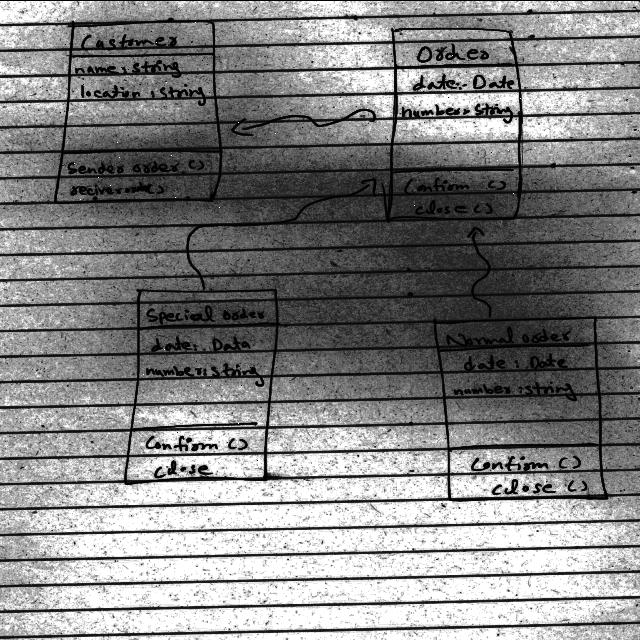 Customer
name: string
location: string
Sender order ()
Order
date: Date
number: string
Confirm ()
close ()
Special order
date: Data
number: string
Confirm ()
close
Normal order
date: Date
number: string
Confirm ()
close ()